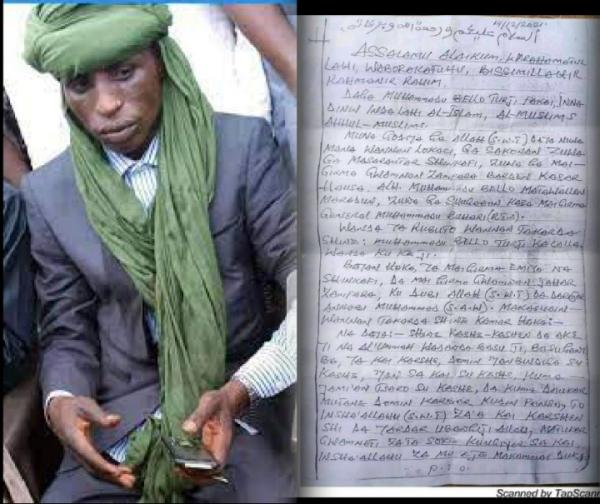 14/12/2021.
السلام عليكم ورحمة الله وبركاته
ASSALAMU ALAIKUM, WARAHOMATUL
LAHI, WABOROKATUHU, BISSIMILLAHIR
RAHMONIR RAHIM.
DAGA MUHAMMADU BELLO TURJI
DININ INDALLAHI AL-ISLAM, AL-MUSLIMS
AHHUL-MUSLIM.
MUNA GODIYA GA ALLAH (S.W.T) DAYA NUNA
MANA WANNAN LOKACI, GA SAKONAN ZUWA
GA MASARAUTAR SHINKAFI, ZUWA GA MAI-
GIRMA GWAMNAN ZAMFARA BARDEN KASAR
HAUSA, ALH. MUHAMMADU BELLO MATAWALLAN
MARADUN, ZUWA GA SHUGABAN KASA MAI GIRMA
GENERAL MUHAMMADU BUHARI (RTD).
WANDA YA RUBUTO WANNAN TAKARDA
SHINE: MUHAMMADU BELLO TURJI KACALLA
WANDA KU KE JI.
BAYAN HAKA, YA MAI GIRMA EMIYA NA
SHINKAFI, DA MAI GIRMA GWAMNAN JAHAR
ZAMFARA, KU DUBI ALLAH (S.W.T) DA DARAJAR
ANNABI MUHAMMAD (S.A.W).
WANNAN TAKARDA SHINE KAMAR HAKA:-
NA DAYA:- SHINE KASHE-KASHEN DA AKE
YI NA AL'UMMAH WADANDA BASU JI, BASU GANI
BA, YA KAI KARSHE, DOMIN 'YAN BINDIGA SU
KASHE, 'YAN SA KAI SU KASHE, KUMA
JAMI'AN TSARO SU KASHE, DA KUMA DAUKAR
MUTANE DOMIN KARBAR KUDIN FANSA, TO
INSHA'ALLAHU (S.W.T) ZA'A KAI KARSHEN
SHI DA YARDAR UBANGIJI ALLAH, MATUKAR
GWAMNATI ZATA SOKE KUNGIYAR SA KAI,
INSHA'ALLAHU ZA MU AJIYE MAKAMAN
P.T.O.
Scanned by TapScann